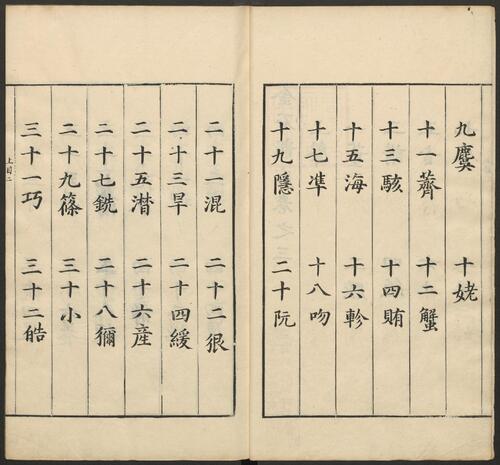 九麌 十姥
十一薺 十二蟹
十三駭 十四賄
十五海 十六軫
十七凖 十八吻
十九隱 二十阮
二十一混 二十二很
二十三旱 二十四緩
二十五潸 二十六產
二十七銑 二十八獮
二十九篠 三十小
三十一巧 三十二皓
上目二